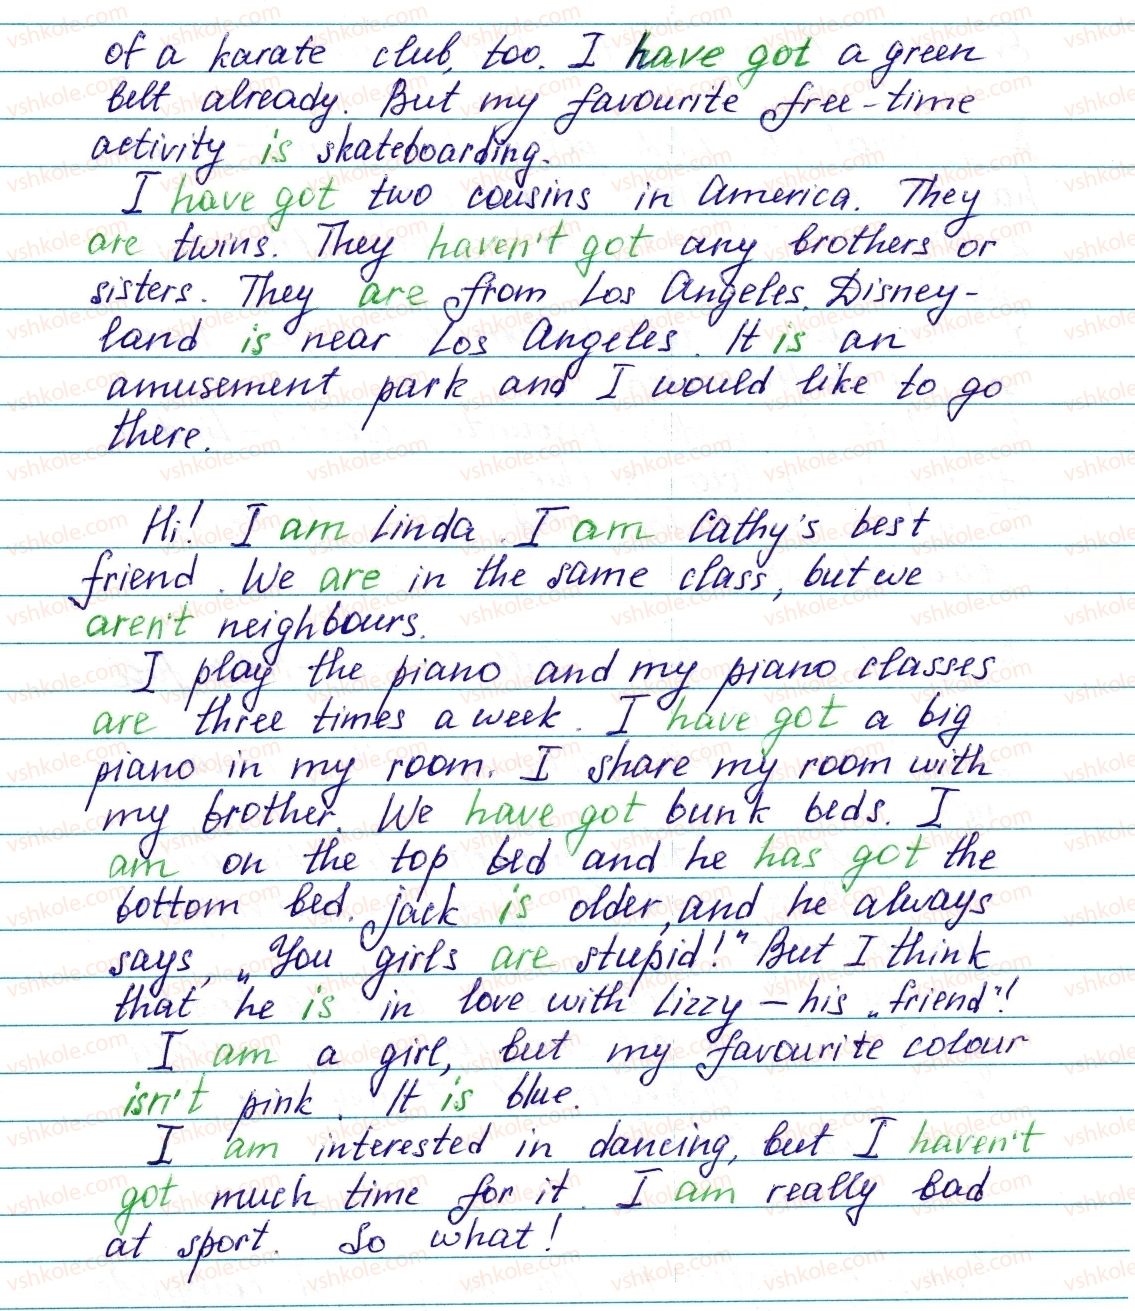 of a karate club, too. I have got a green
belt already. But my favourite free-time
activity is skateboarding.
I have got two cousins in America. They
are twins. They haven't got any brothers or
sisters. They are from Los Angeles. Disney-
land is near Los Angeles. It is an
amusement park and I would like to go
there.
Hi! I am Linda. I am Cathy's best
friend. We are in the same class, but we
aren't neighbours.
I play the piano and my piano classes
are three times a week. I have got a big
piano in my room. I share my room with
my brother. We have got bunk beds. I
am on the top bed and he has got the
bottom bed. Jack is older, and he always
says, „You girls are stupid!" But I think
that he is in love with Lizzy – his „friend"!
I am a girl, but my favourite colour
isn't pink. It is blue.
I am interested in dancing, but I haven't
got much time for it. I am really bad
at sport. So what!